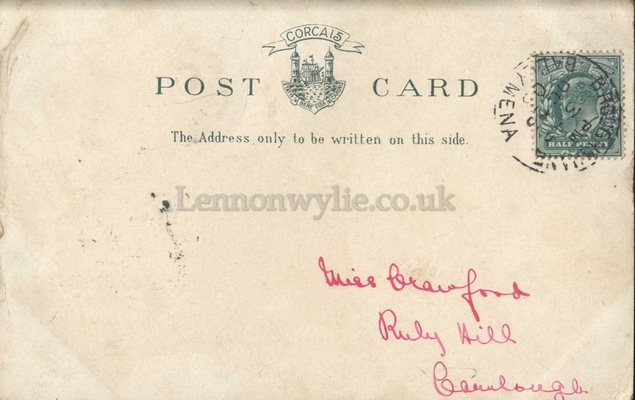 CORCAIS
POST CARD
The Address only to be written on this side.
HALF PENNY
BALLYMENA
Lennonwylie.co.uk
Miss Crawford
Ruby Hill
Carnlough